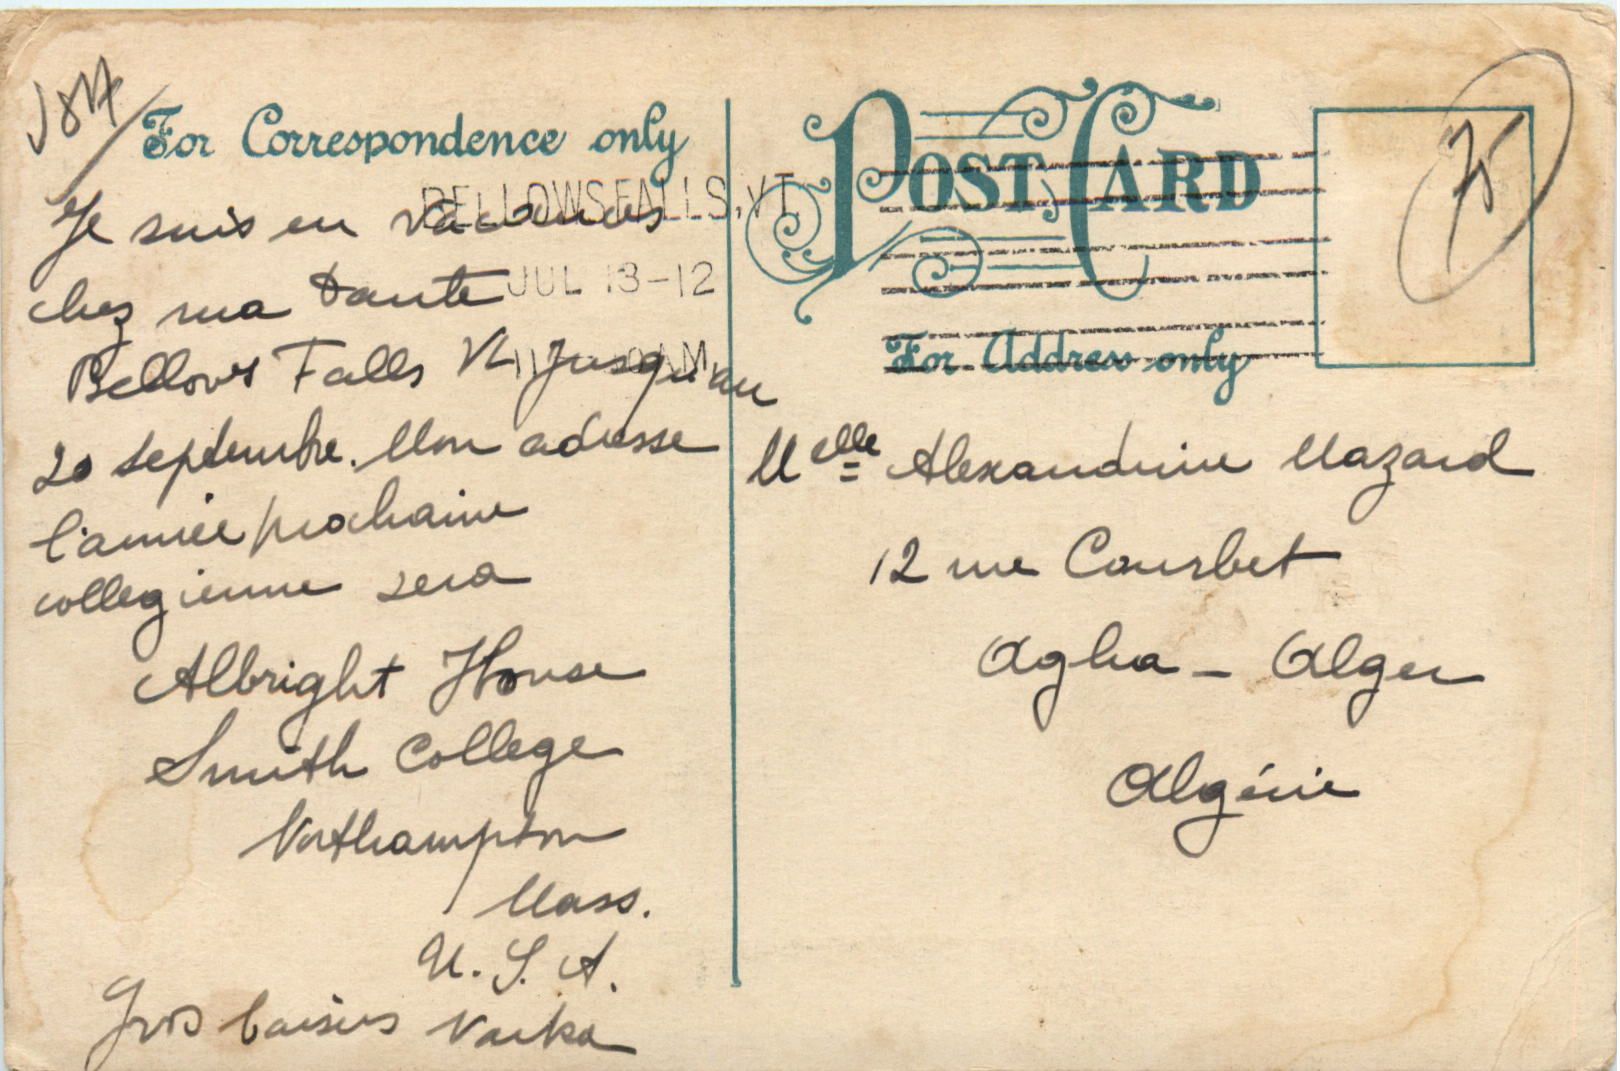 For Correspondence only
BELLOWS FALLS, VT
JUL 13-12
AM
Je suis en vacances
chez ma tante
Bellows Falls Vt jusqu'au
20 septembre. Mon adresse
l'année prochaine
collegienne sera
Albright House
Smith College
Northampton
Mass.
U. S. A.
Gros baisers
POST CARD
For Address only
75
Melle Alexandrine Mazard
12 rue Courbet
Agha - Alger
Algérie